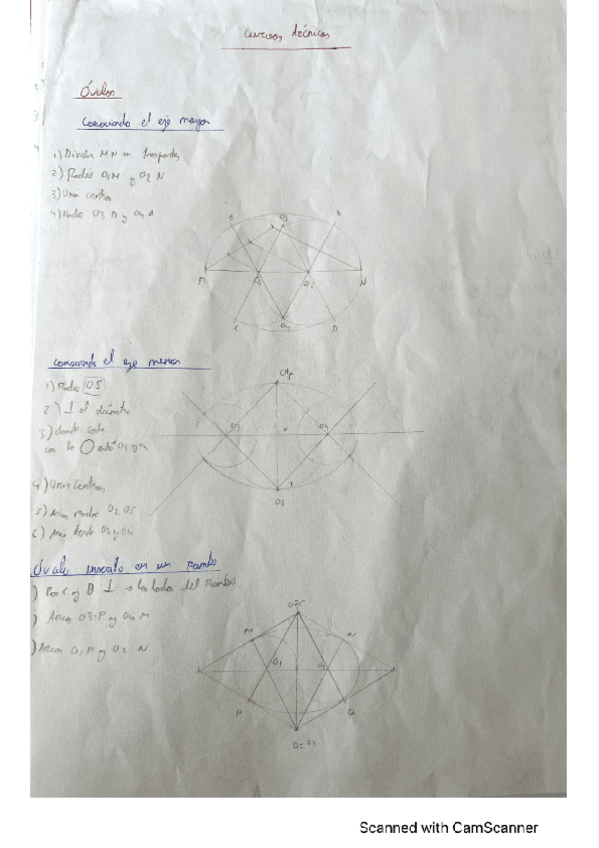 curvas técnicas
Óvalos
conociendo el eje mayor
1) Dividir MN en tres partes
2) Radio O1M y O2 N
3) Unir centros
4) Radio O3 y O4
O3
M
O1
O2
N
C
O4
D
conociendo el eje menor
1) Radio O5
2) ⊥ al diámetro
3) donde corta
con la
4) Unir centros
5) radio O2 O5
6) desde O3 y O4
O3
O4
O2
Óvalo inscrito en un Rombo
) Por C y D ⊥ a los lados del Rombo
) Arcos O3-P y O4 M
) Arcos O1 M y O2 N
O3=C
M
N
O1
O2
P
Q
D=O4
Scanned with CamScanner